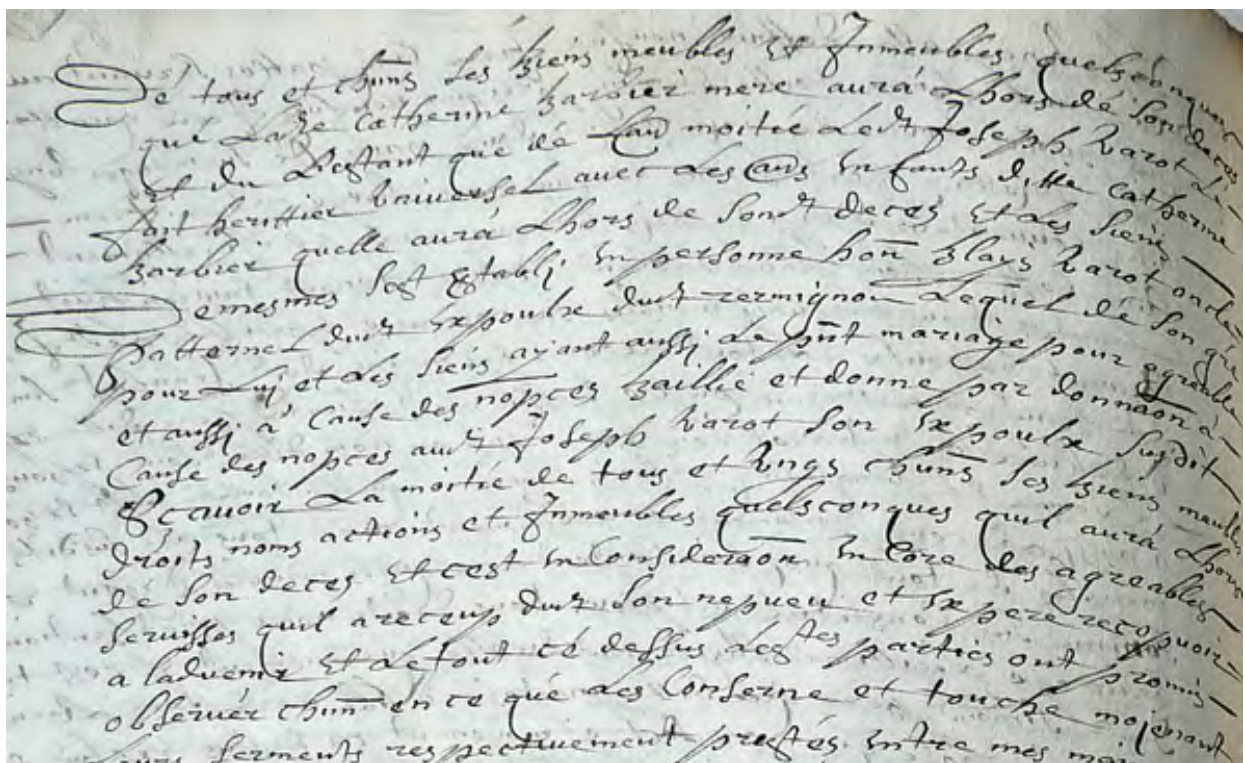 De tous et chūns ses biens meubles et Inmeubles quelsconques
que Lad.te Catherine barbier mere aurá Lhors de son deces
et du Restant que dé Lau.e moitié Led.t Joseph Rarot Le
fait herittier Universel avec Les au.es enfants d'itte Catherine
barbier quelle aurá Lhors de sond.t deces et Les siens
Demesmes sest establi en personne hon. blays Rarot oncle
patternel dud.t Expoulx dud.t termignon Lequel dé son gré
pour Luj et Les siens ajant aussj Le pñt mariage pour agreable
et aussj á Cause des nopces baillié et donne par donnaõn á
Cause des nopces aud.t Joseph Rarot son Expoulx susdit
Sçavoir La moitié de tous et Ungs chūns ses biens meubles
droits noms actions et Inmeubles quelsconques quil aurá Lhors
dé son deces et cest en Consideraõn enCore des agreables
servisses quil a receup dud.t son nepueu et Expere recepuoir
a ladvenir et Letout cé dessus Lesd.tes parties ont promis
observér chūn en ce qué Les Conserne et touche mojenant
Leurs serments respectivement prestés entre mes mains